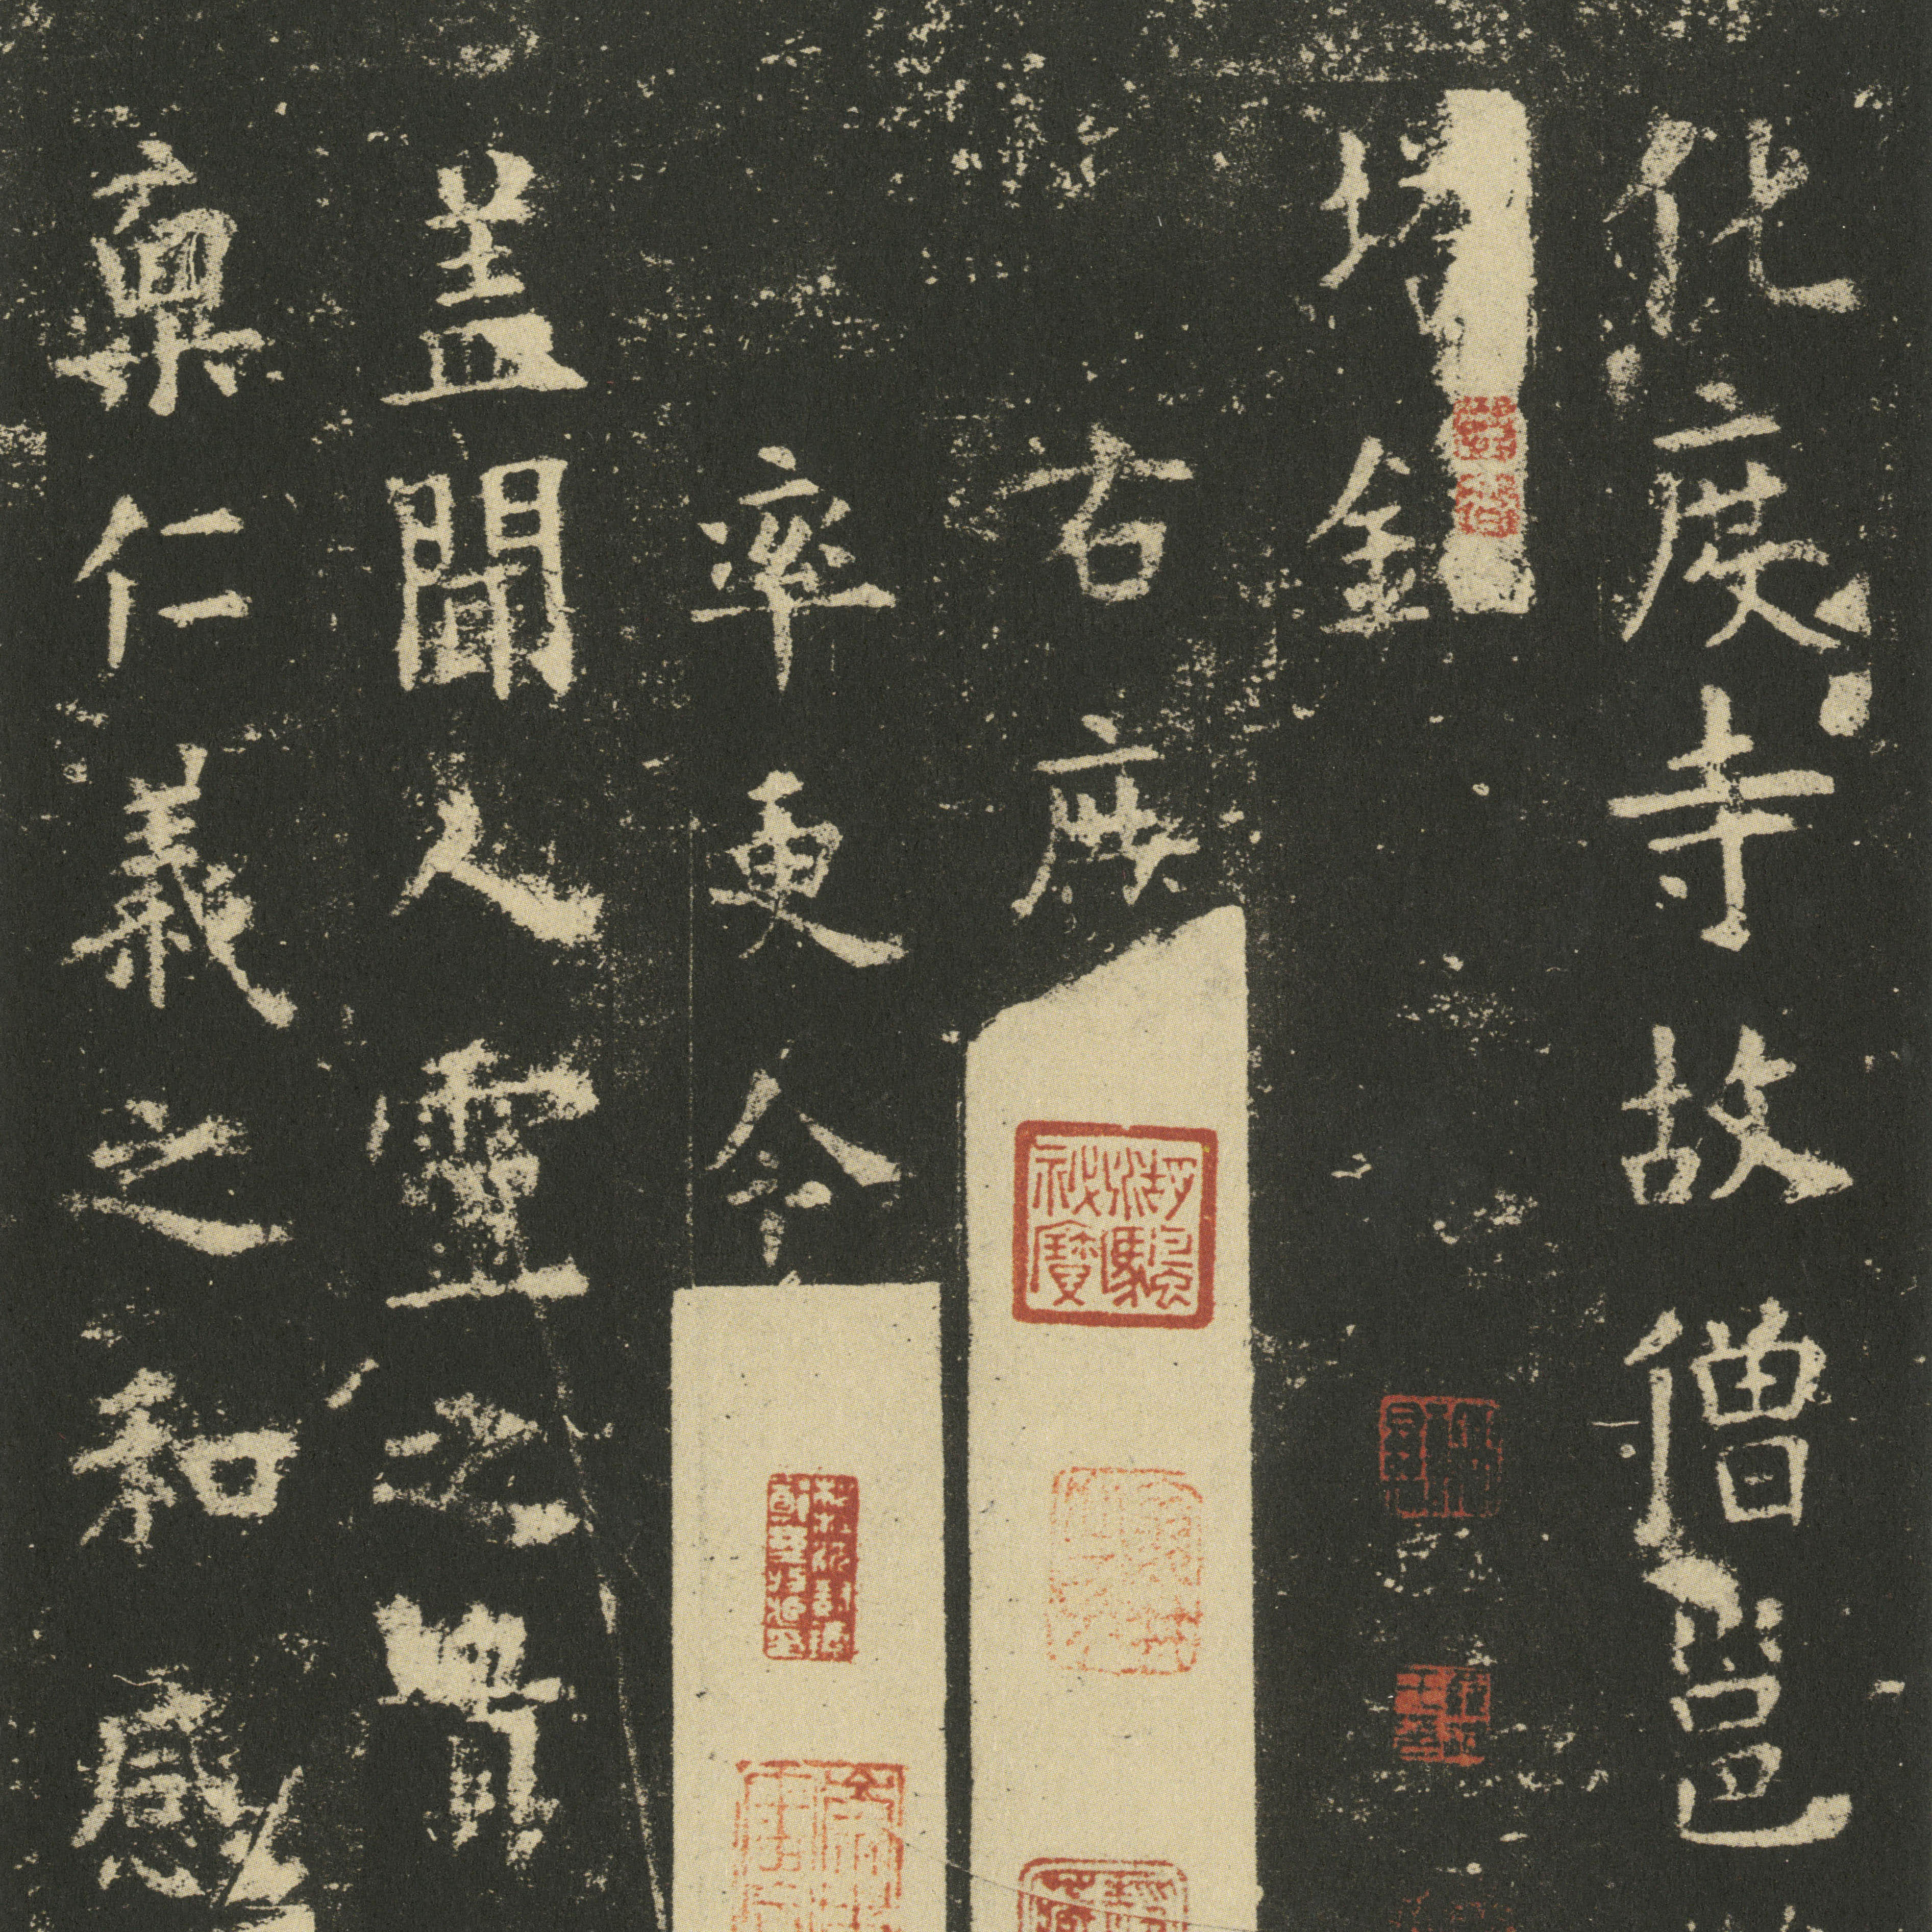 化度寺故僧邕
塔銘
右庶
率更令
盖聞人靈之貴
禀仁義之和感